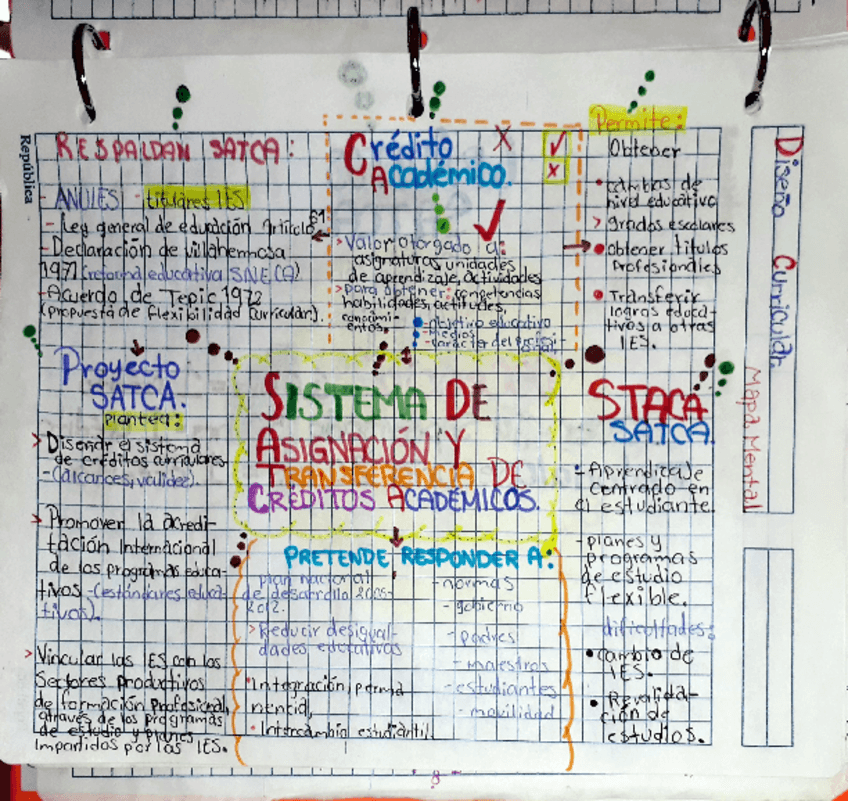 República
RESPALDAN SATCA:
- ANUIES - titulares IES
- Ley general de educación artículo 61
- Declaración de villahermosa
1971 (reforma educativa SNECA)
- Acuerdo de Tepic 1972
(propuesta de flexibilidad curricular).
Crédito
Académico.
> Valor otorgado a:
asignaturas, unidades
de aprendizaje, actividades
> para obtener: competencias
habilidades, actitudes,
conocimientos.
- objetivo educativo
- medios
Permite:
Obtener
• cambios de
nivel educativo
> grados escolares
• obtener titulos
profesionales
• Transferir
logros educa-
tivos a otras
IES.
Diseño Curricular
Mapa Mental
Proyecto
SATCA.
plantea:
> Diseñar el sistema
de créditos curriculares
- (alcances, validez).
> Promover la acredi-
tación Internacional
de los programas educa-
tivos - (estándares educa-
tivos).
> Vincular las IES con los
Sectores Productivos
de formación Profesional,
através de los programas
de estudio y planes
impartidos por las IES.
SISTEMA DE
ASIGNACIÓN Y
TRANSFERENCIA DE
CRÉDITOS ACADÉMICOS.
PRETENDE RESPONDER A:
plan nacional
de desarrollo
2012.
> Reducir desigual-
dades educativas
• Integración, perma
nencia,
• Intercambio estudiantil
- normas
- gobierno
- padres
- maestros
- estudiantes
- movilidad
STACA
SATCA
- Aprendizaje
centrado en
el estudiante
- planes y
programas
de estudio
flexible.
dificultades:
• cambio de
IES.
• Revalida-
ción de
estudios.
8